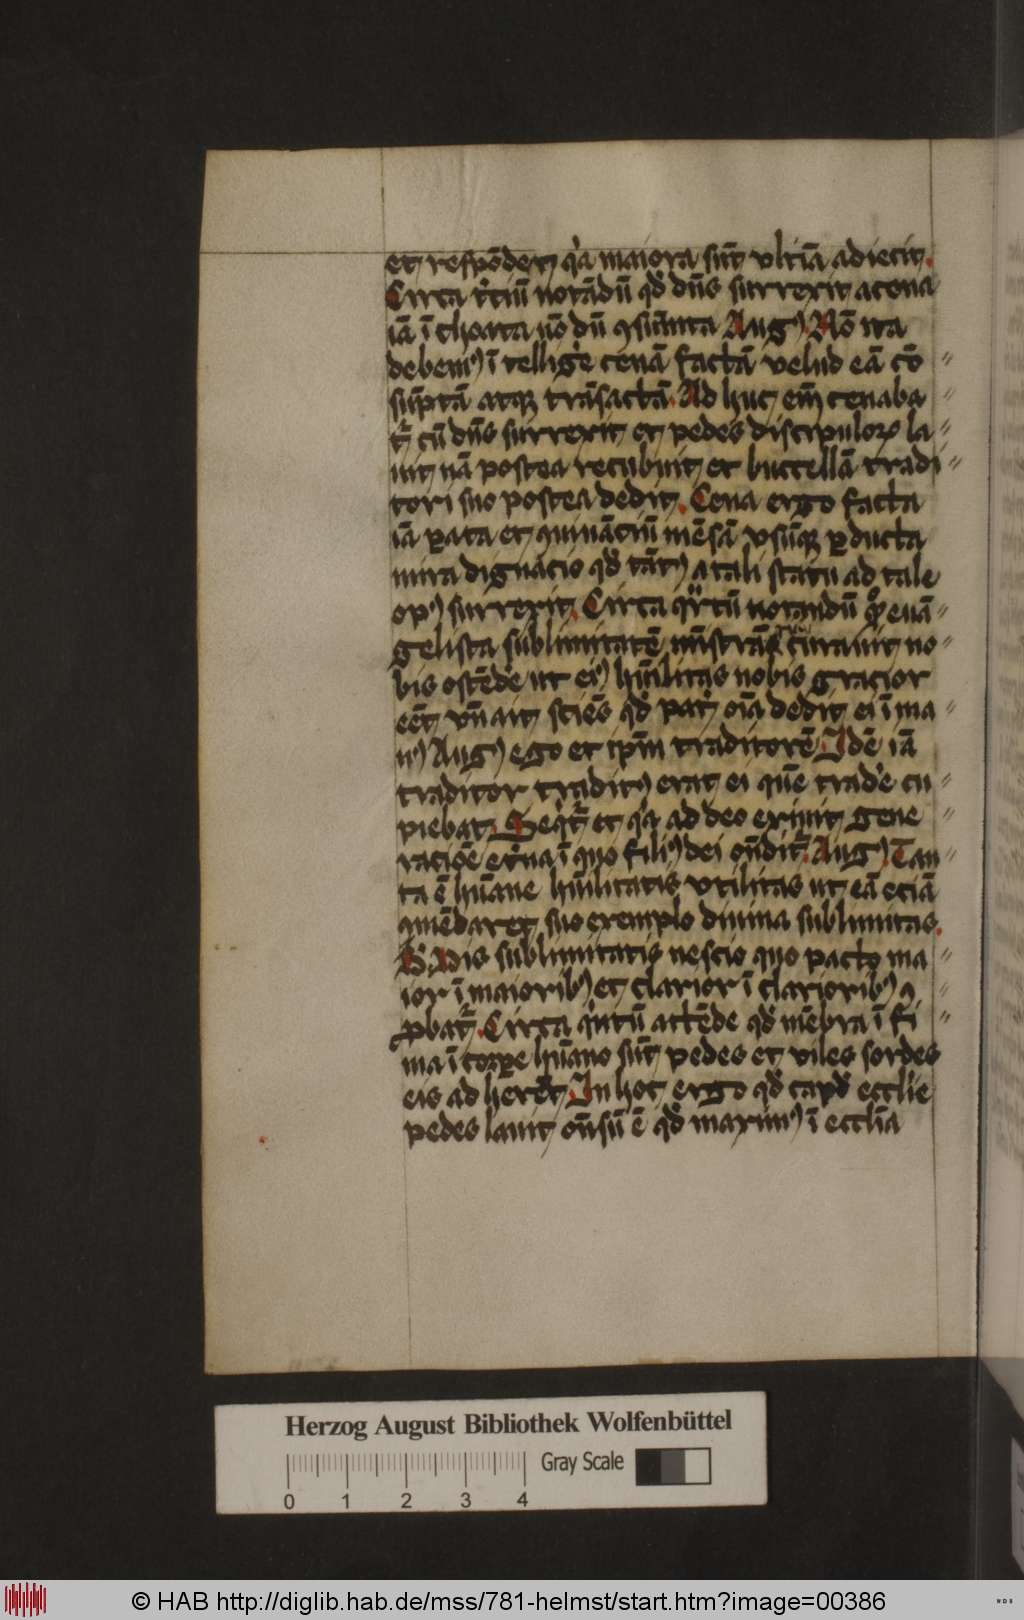 et respōdet qͥa maiora sūt vltīa adiecit.
Circa t̾ciū notādū qd̾ dn̄s surrexit a cena
iā īchoata nō dū ꝯsūmta Augꝰ Nō ita
debemꝰ ītellig̾e cenā factā velud eā cō
sūptā atqꝫ trāsactā. Ad huc em̄ cenaba
t̾ cū dn̄s surrexit et pedes discipuloꝝ la
uit nā postea recubuit et buccellā tradi
tori suo postea dedit. Cena ergo facta
iā ꝑata et ꝯuiuāciū mēsā vsūqꝫ ꝑducta
mira dignacio qd̾ tātꝰ a tali statu ad tale
opꝰ surrexit. Circa qͣrtū notandū ꝙ euā
gelista sublimitatē mīstrāt̾ curauit no
bis ostēde̾ ut eiꝰ hūilitas nobis gracior
eēt vn̄ ait sciēs qd̾ pat̾ oīa dedit ei ī ma
nꝰ Augꝰ ego et ip̄m traditorē. Idē iā
traditor traditꝰ erat ei quē trad̾e cu
piebat. Seqͥt̾ et qͥa ad deo exiuit gene
racōe et̾na ī quo filiꝰ dei on̄dit̾. Augꝰ Tan
ta ē hūane hūilitatis vtilitas ut eā eciā
ꝯmēdaret suo exemplo diuina sublimitas.
sublimitatis nescio quo pacto ma
ior ī maioribꝰ et clarior ī clarioribꝰ ꝯ
ꝓbat̾. Circa qͥntū attēde qd̾ mēbra ī fi
ma ī corꝑe hūano sūt pedes et viles sordes
eis ad herēt. In hoc ergo qd̾ capd̾ eccl̾ie
pedes lauit on̄sū ē qd̾ maximꝰ ī eccl̾ia
Herzog August Bibliothek Wolfenbüttel
Gray Scale
0 1 2 3 4
© HAB http://diglib.hab.de/mss/781-helmst/start.htm?image=00386